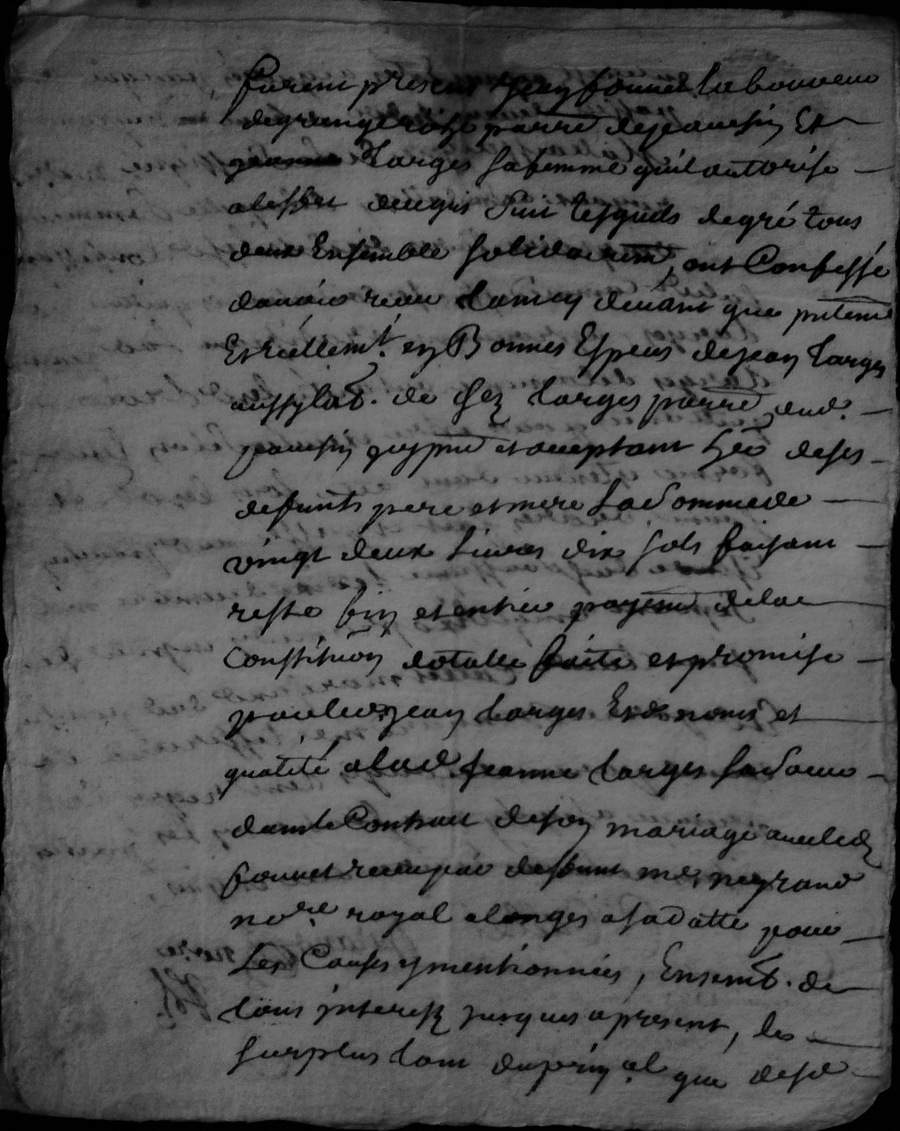 furent presens Jean fonnet laboureur
de grange parre de jeansin Et
jeanne Larges sa femme quil autorise
a leffet du quis suit lesquels de gré tous
deux Ensemble solidairemt, ont Confessé
davoir receu tant cy devant que pntemt
Et réellemt. en Bonnes Espeus de jean Larges
aussy lab. de chez Larges parre dud.
jeansin pnt et acceptant her de ses
defunts pere et mere La Somme de
vingt deux Livres dix sols faisant
reste fin et entier payemt de la
Constituõn dotalle faite et promise
par led. jean Larges Es noms et
qualité a lad. jeanne Larges sa Sœur
dans le Contrat de son mariage avec led.
fonnet receu par deffunt me. negrand
nore. royal a langes a sa datte pour
Les Causes y mentionnées, Ensemb. de
tous interest jusques a present, le
surplus tant du prinal que desd